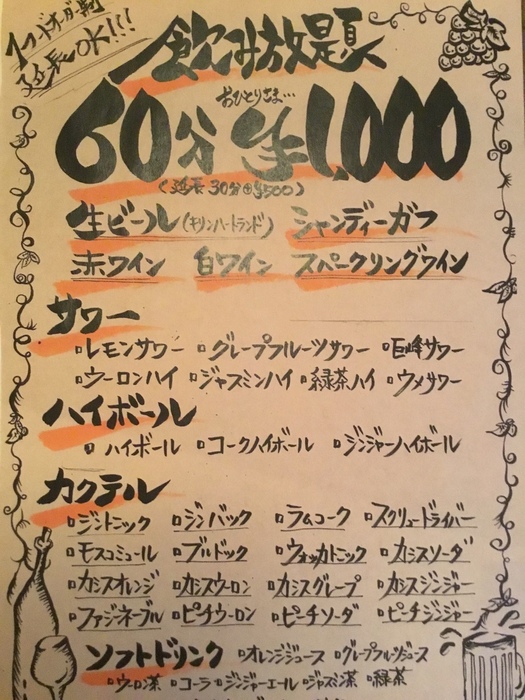 1フードオーダー制
延長OK!!!
飲み放題
おひとりさま…
60分 ¥1,000
(延長 30分⊕¥500)
生ビール(キリンハートランド) シャンディーガフ
赤ワイン 白ワイン スペークリングワイン
サワー
▫レモンサワー ▫グレープフルーツサワー ▫巨峰サワー
▫ウーロンハイ ▫ジャスミンハイ ▫緑茶ハイ ▫ウメサワー
ハイボール
▫ハイボール ▫コークハイボール ▫ジンジャーハイボール
カクテル
▫ジントニック ▫ジンバック ▫ラムコーク ▫スクリュードライバー
▫モスコミュール ▫ブルドック ▫ウォッカトニック ▫カシスソーダ
▫カシスオレンジ ▫カシスウーロン ▫カシスグレープ ▫カシスジンジャー
▫ファジネーブル ▫ピーチウーロン ▫ピーチソーダ ▫ピーチジンジャー
ソフトドリンク ▫オレンジジュース ▫グレープフルーツジュース
▫ウーロン茶 ▫コーラ ▫ジンジャーエール ▫ジャスミン茶 ▫緑茶